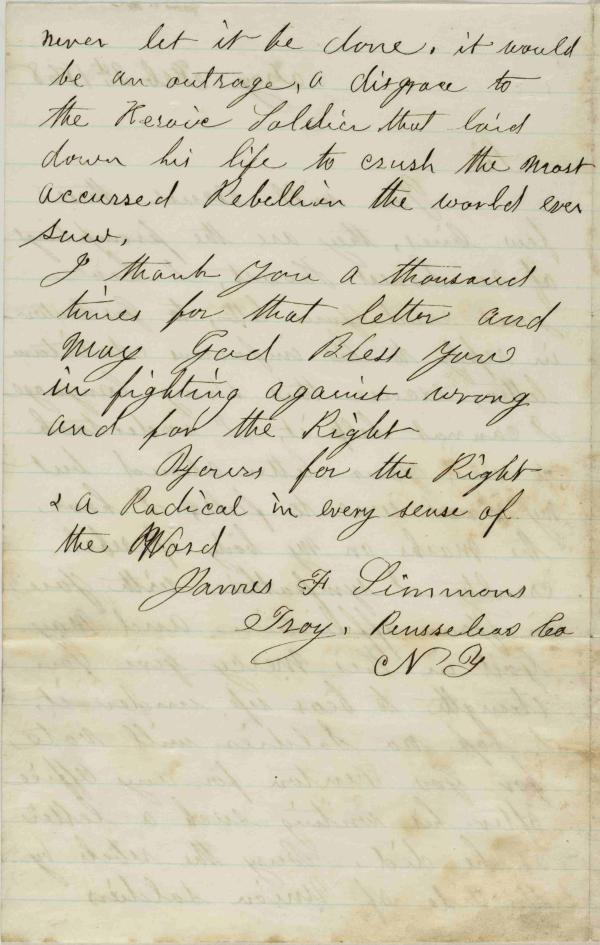 never let it be done. it would
be an outrage, a disgrace to
the Heroic Soldier that laid
down his life to crush the most
accursed Rebellion the world ever
saw.
I thank you a thousand
times for that letter and
May God Bless you
in fighting against wrong
and for the Right
Yours for the Right
& A Radical in every sense of
the Word
James F Simmons
Troy, Rensselear Co
N Y